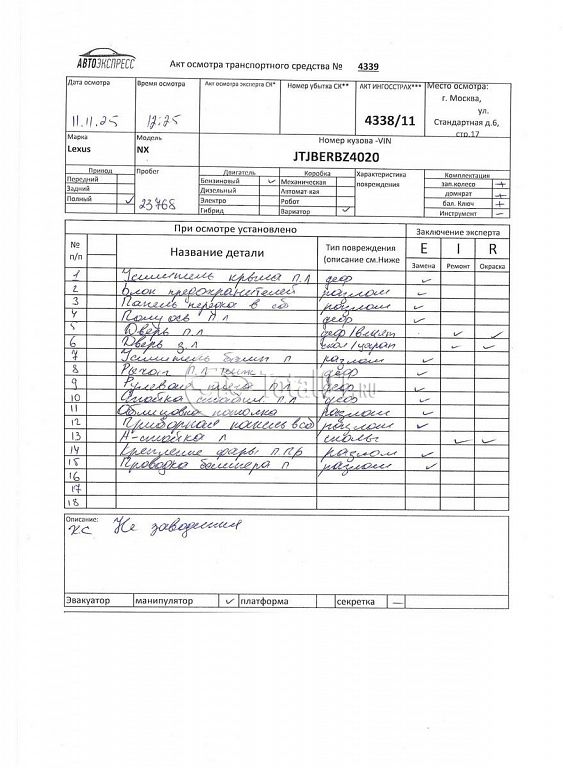 АВТОЭКСПРЕСС
Акт осмотра транспортного средства № 4339
Дата осмотра Время осмотра Акт осмотра эксперта СК* Номер убытка СК** АКТ ИНГОССТРАХ*** Место осмотра:
11.11.25 12:25 4338/11 г. Москва,
ул.
Стандартная д.6,
стр.17
Марка Модель Номер кузова -VIN
Lexus NX JTJBERBZ4020
Привод Пробег Двигатель Коробка Характеристика повреждения Комплектация
Передний Бензиновый ✓ Механическая зап.колесо +
Задний Дизельный Автомат кая домкрат +
Полный ✓ 23768 Электро Робот бал. Ключ +
Гибрид Вариатор ✓ Инструмент –
При осмотре установлено Заключение эксперта
№ п/п Название детали Тип повреждения (описание см.Ниже E I R
Замена Ремонт Окраска
1 Усилитель крыла П.Л деф ✓
2 Блок предохранителей разлом ✓
3 Панель передка в сб разлом ✓
4 Полуось П Л деф ✓
5 Дверь П.Л деф/вмят ✓ ✓
6 Дверь З.Л скол/царап ✓ ✓
7 Усилитель П разлом ✓
8 Рычаг П.Л деф ✓
9 Рулевая деф ✓
10 Стойка стабил П.Л деф ✓
11 Облицовка потолка разлом ✓
12 Приборная панель в сб разлом ✓
13 А-стойка Л сколы ✓ ✓
14 Крепление фары П ПР разлом ✓
15 Проводка бампера П разлом ✓
16
17
18
Описание:
КС Не заводится
Эвакуатор манипулятор ✓ платформа секретка —